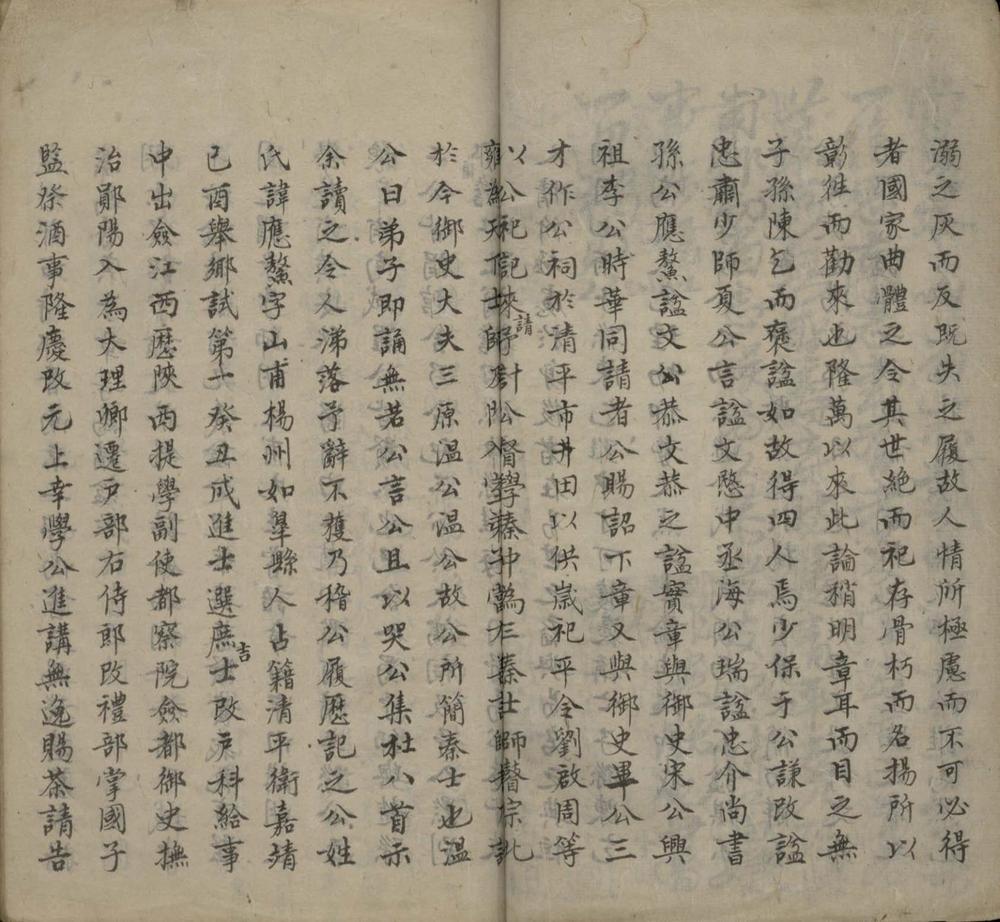 溺之灰而反既失之履故人情所極慮而不可必得
者國家曲體之令其世絶而祀存骨朽而名揚所以
彰徃而勸來也隆萬以來此論稍明章耳而目之無
子孫陳乞而襃諡如故得四人焉少保于公謙改諡
忠肅少師夏公言諡文愍中丞海公瑞諡忠介尚書
孫公應鰲諡文公恭文恭之諡實章與御史宋公興
祖李公時華同請者公賜詔下章又與御史畢公三
才作公祠於清平市井田以供嵗祀平令劉啟周等
以公祀記請
於今御史大夫三原温公温公故公所簡秦士也温
公曰弟子即誦無若公言公且以哭公集杜八首示
余讀之令人涕落予辭不獲乃稽公履歷記之公姓
氏諱應鰲字山甫楊州如臯縣人占籍清平衛嘉靖
己酉舉鄉試第一癸丑成進士選庶吉士改户科給事
中出僉江西歷陜西提學副使都察院僉都御史撫
治鄖陽入為大理卿遷户部右侍郎改禮部掌國子
監祭酒事隆慶改元上幸學公進講無逸賜茶請告